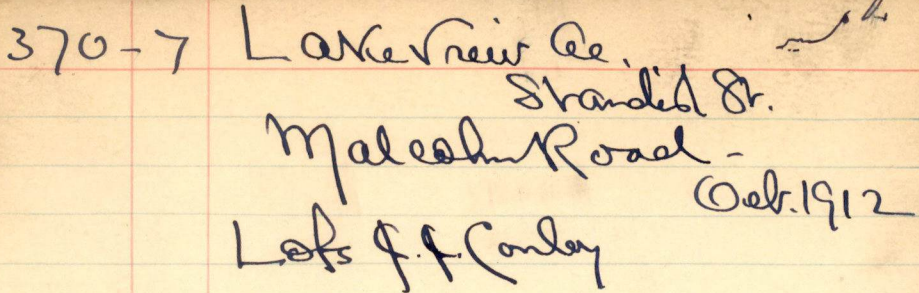 370-7 Lake View Ae.
Standish St.
Malcolm Road -
Oct. 1912
Lots J. J. Conley